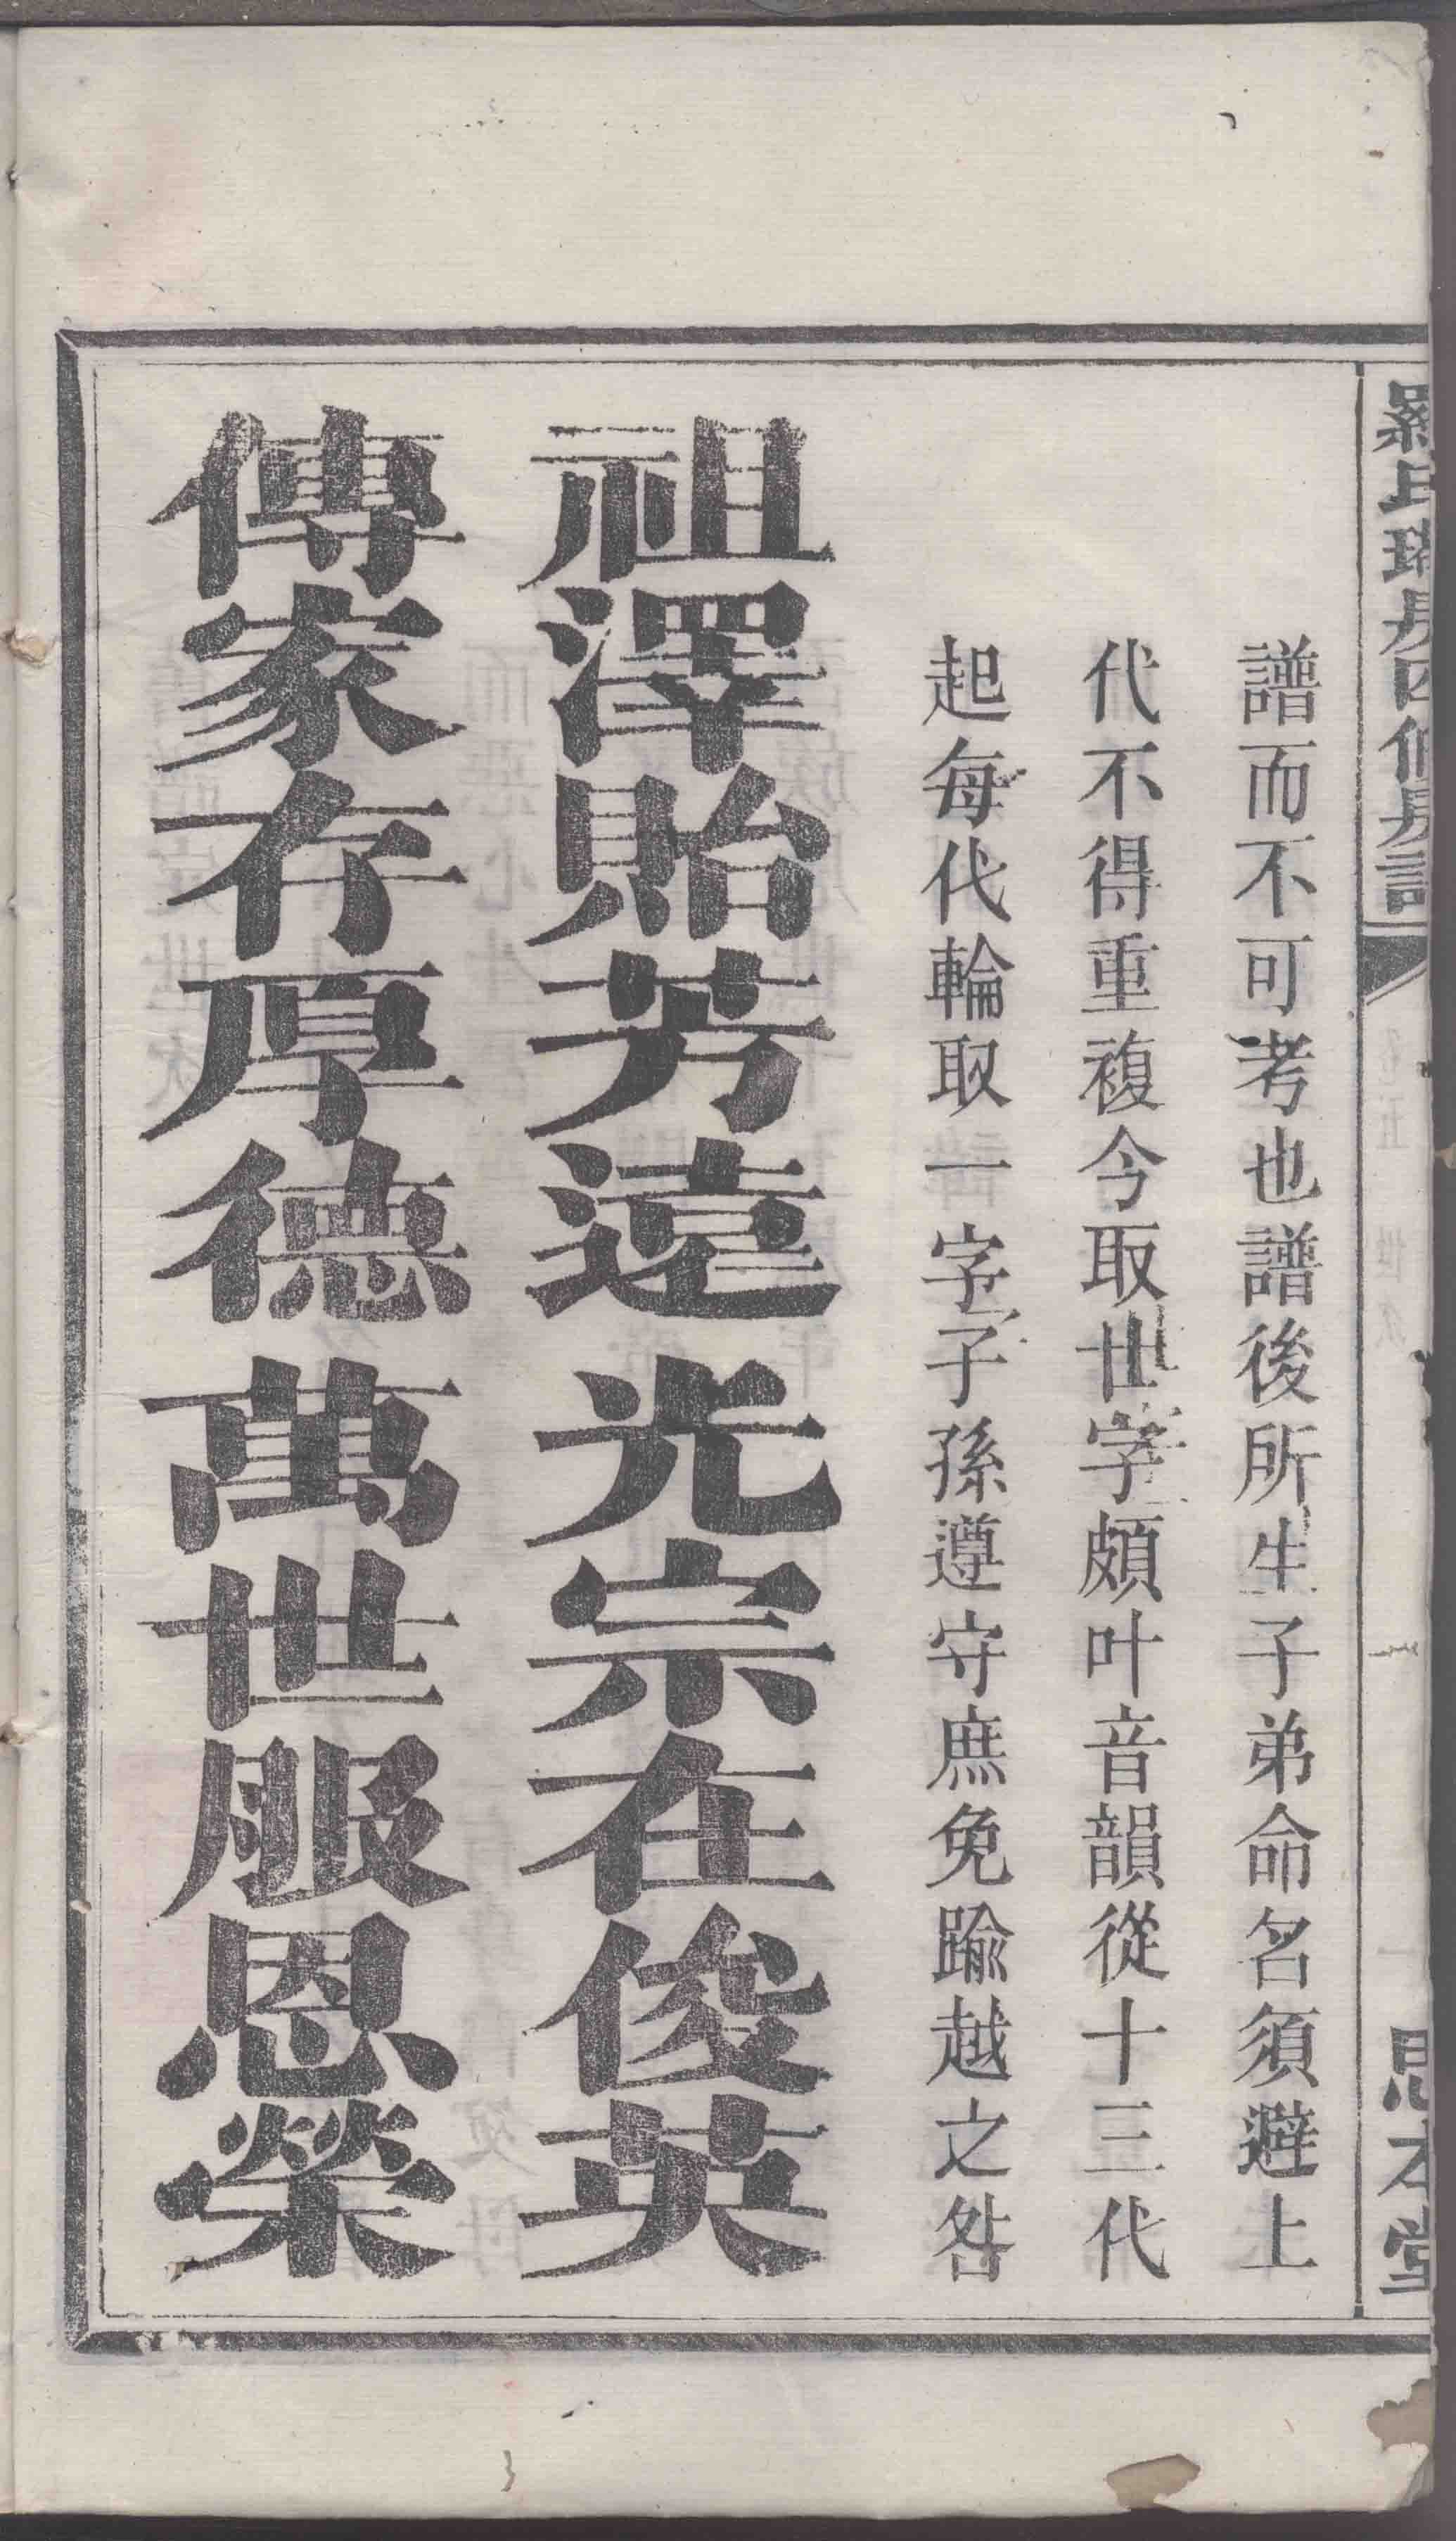 羅氏
房四修房譜
思本堂
譜而不可考也譜後所生子弟命名須避上
代不得重複今取世字頗叶音韻從十三代
起每代輪取一字子孫遵守庶免踰越之咎
祖澤貽芳遠 光宗在俊英
傳家存厚德 萬世服恩榮